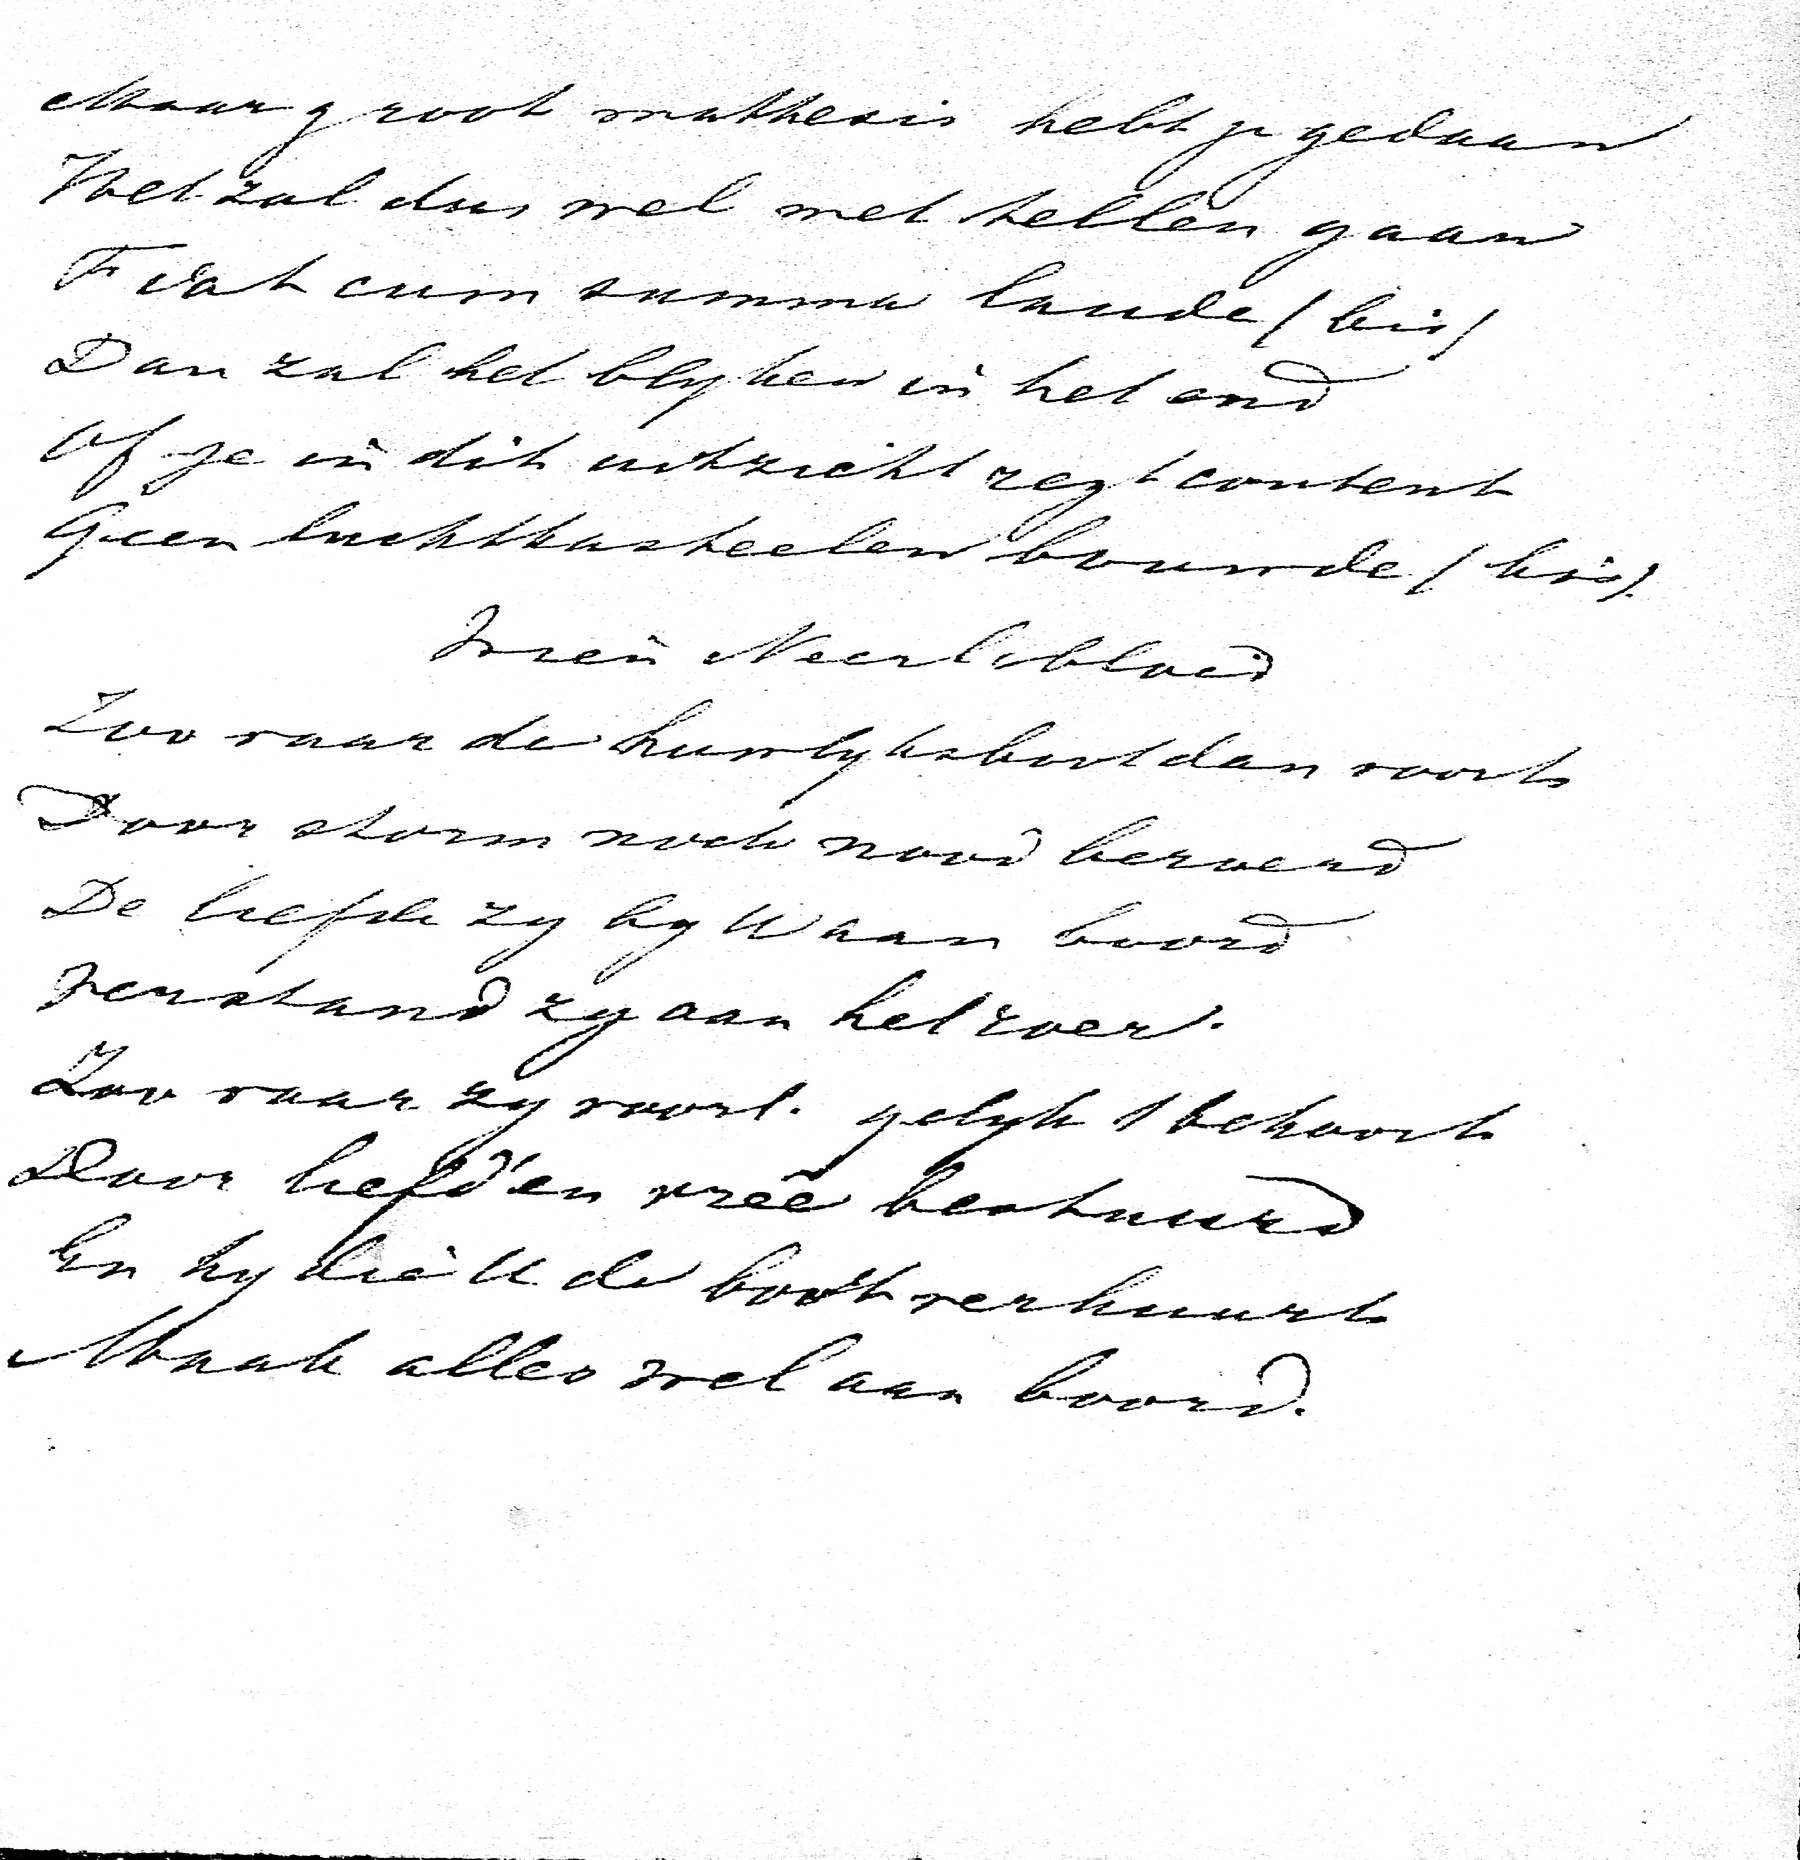 Maar groot mathesis hebt ge gedaan
Het zal dus wel met tellen gaan
Fiat cum summa laude (bis)
Dan zal het blyken in het end
Of je in dit uitzicht regt content
Geen luchtkasteelen bouwde (bis).
Wien Neerlsbloed
Zoo vaar de huwlyksboot dan voort
Door storm noch nood beroerd
De liefde zy by U aan boord
Verstand zy aan het roer.
Zoo vaar zy voort. gelyk 't behoort
Door liefd' en vreê bestuurd
En hy die U de boot verhuurt
Maak alles wel aan boord.